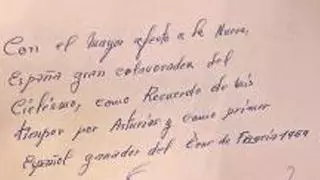 Con el mayor afecto a la Nueva,
España gran colavorador del
Ciclismo, como Recuerdo de mis
tiempos por Asturias y como primer
Español ganador del Tour de Francia 1959